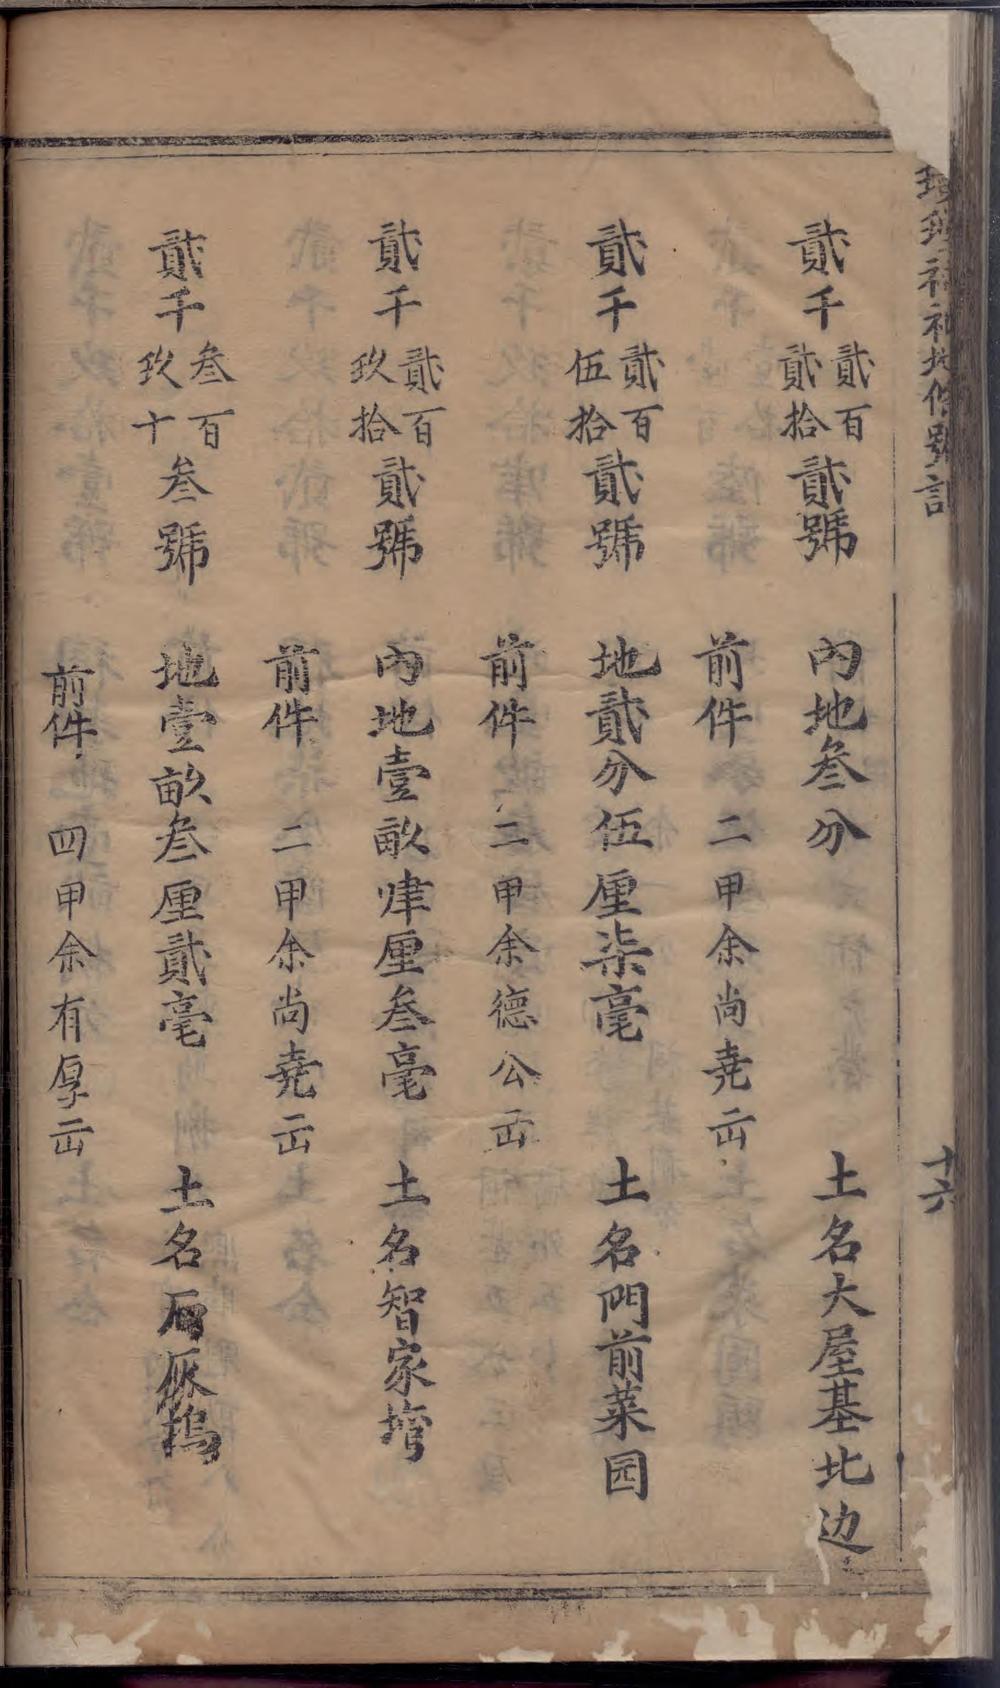 貳千貳百貳拾貳號 內地叁分 土名大屋基北边
前件 二甲余尚尭
貳千貳百伍拾貳號 地貳分伍厘柒毫 土名門前菜园
前件 二甲余德公
貳千貳百玖拾貳號 內地壹畝肆厘叁毫 土名智家塆
前件 二甲余尚尭
貳千叁百玖十叁號 地壹畝叁厘貳毫 土名
前件 四甲余有厚
十六